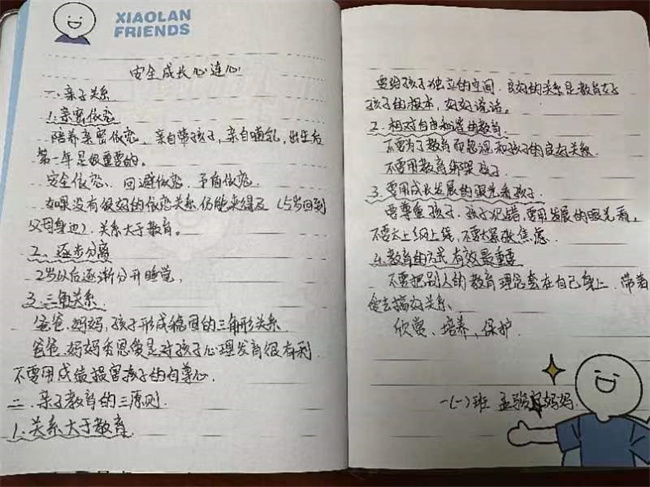 XIAOLAN
FRIENDS
安全成长心连心
一、亲子关系
1.亲密依恋
陪养亲密依恋，亲自带孩子，亲自哺乳，出生后
第一年是很重要的。
安全依恋、回避依恋、矛盾依恋.
如果没有很好的依恋关系仍能来得及（5岁回到
父母身边）.关系大于教育。
2、逐步分离
2岁以后逐渐分开睡觉.
3.三角关系.
爸爸,妈妈,孩子形成稳固的三角形关系.
爸爸,妈妈秀恩爱是对孩子心理发育很有利
不要用成绩损害孩子的自尊心.
二、亲子教育的三原则.
1.关系大于教育
要给孩子独立的空间.良好的关系是教育好
孩子的根本,好好说话。
2.相对自由知道的教育.
不要为了教育而忽视和孩子的良好关系.
不要用教育绑架孩子
3.要用成长发展的眼光看孩子.
要尊重孩子.孩子犯错,要用发展的眼光看,
不要上纲上线,不要太紧张焦虑.
4.教育的方式有效最重要
不要把别人的教育理念套在自己身上.带着
爱去搞好关系、
欣赏、培养、保护.
一（一）班 孟 妈妈